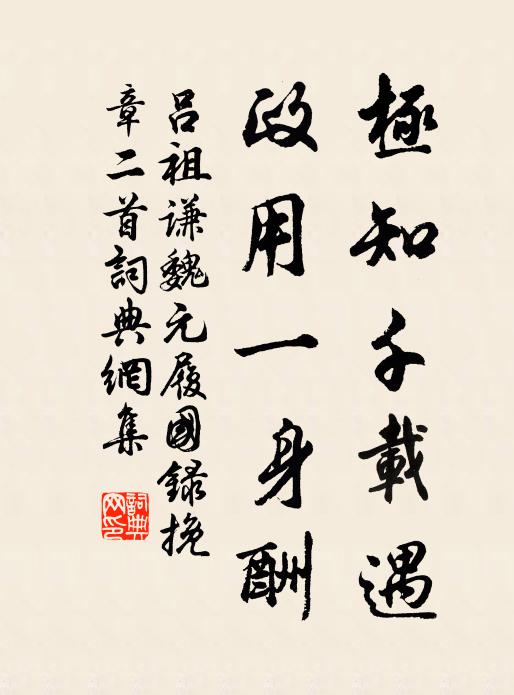 極知千載遇
政用一身酬
吕祖谦魏元履國録挽
章二首詞典網集
詞典網印